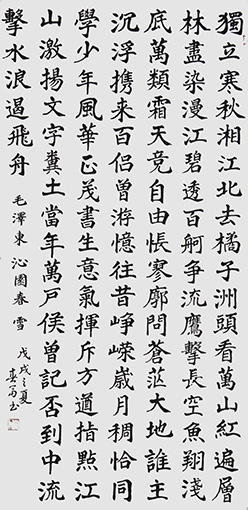 獨立寒秋湘江北去橘子洲頭看萬山紅遍層
林盡染漫江碧透百舸争流鷹擊長空魚翔淺
底萬類霜天竞自由悵寥廓問蒼茫大地誰主
沉浮携来百侣曾游憶往昔崢嶸歲月稠恰同
學少年風華正茂書生意氣揮斥方遒指點江
山激揚文字糞土當年萬户侯曾記否到中流
擊水浪遏飛舟
毛澤東 沁園春 雪
戊戌之夏